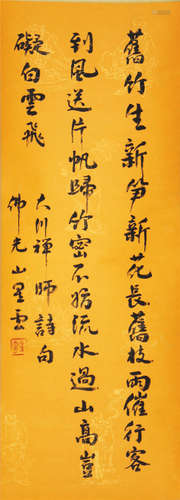 舊竹生新笋新花長舊枝雨催行客
到風送片帆歸竹密不妨流水過山高豈
礙白雲飛
大川禪師詩句
佛光山星雲